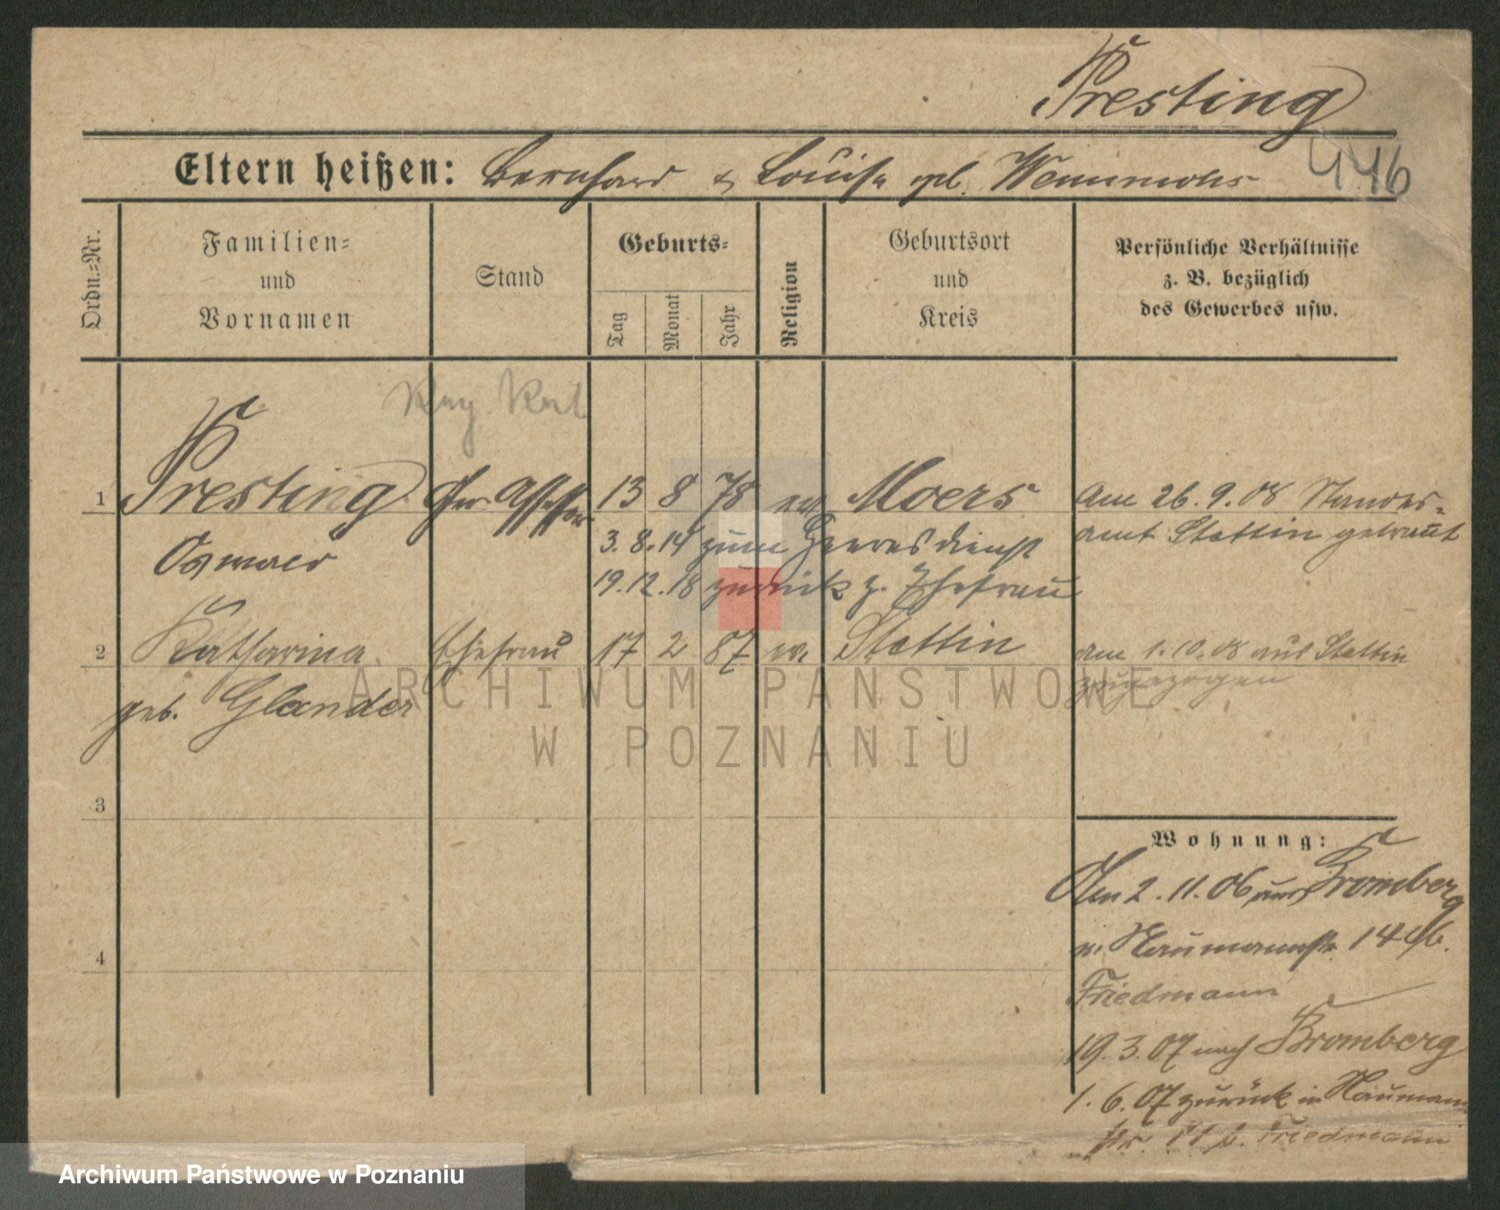 Presting
446
Eltern heißen: Bernhard & Louise geb.
Ordn.=Nr.
Familien=
und
Vornamen
Stand
Geburts=
Tag
Monat
Jahr
Religion
Geburtsort
und
Kreis
Persönliche Verhältnisse
z. B. bezüglich
des Gewerbes usw.
Reg. Rat
1 Presting Ger. Assessor 13 8 78 ev. Moers
Am 26.9.08 Standes=
amt Stettin getraut
Oswald
3.8.14 zum Heeresdienst
19.12.18 zurück z. Ehefrau
2 Katharina Ehefrau 17 2 87 ev. Stettin
am 1.10.08 aus Stettin
zugezogen
geb. Glander
ARCHIWUM PAŃSTWOWE
W POZNANIU
3
4
Wohnung:
Am 2.11.06 aus Bromberg
n. Naumannstr. 14
Friedmann
19.3.07 nach Bromberg
1.6.07 zurück in Naumann
str. b. Friedmann
Archiwum Państwowe w Poznaniu